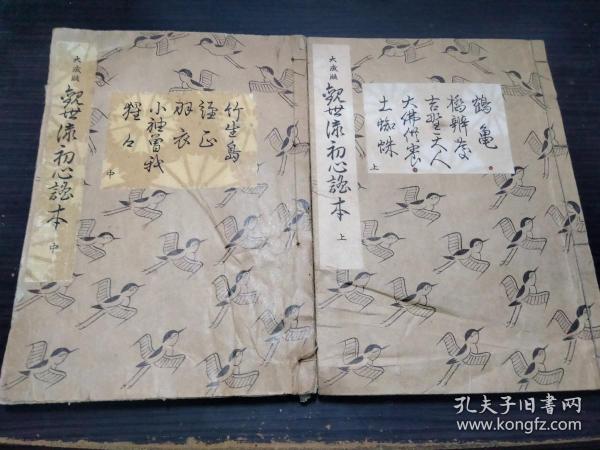 大成版
観世流初心謡本 上
鶴亀
橋弁慶
吉野天人
大佛供養
土蜘蛛
上
大成版
観世流初心謡本 中
竹生島
経正
羽衣
小袖曽我
猩々
中
孔夫子旧书网
www.kongfz.com